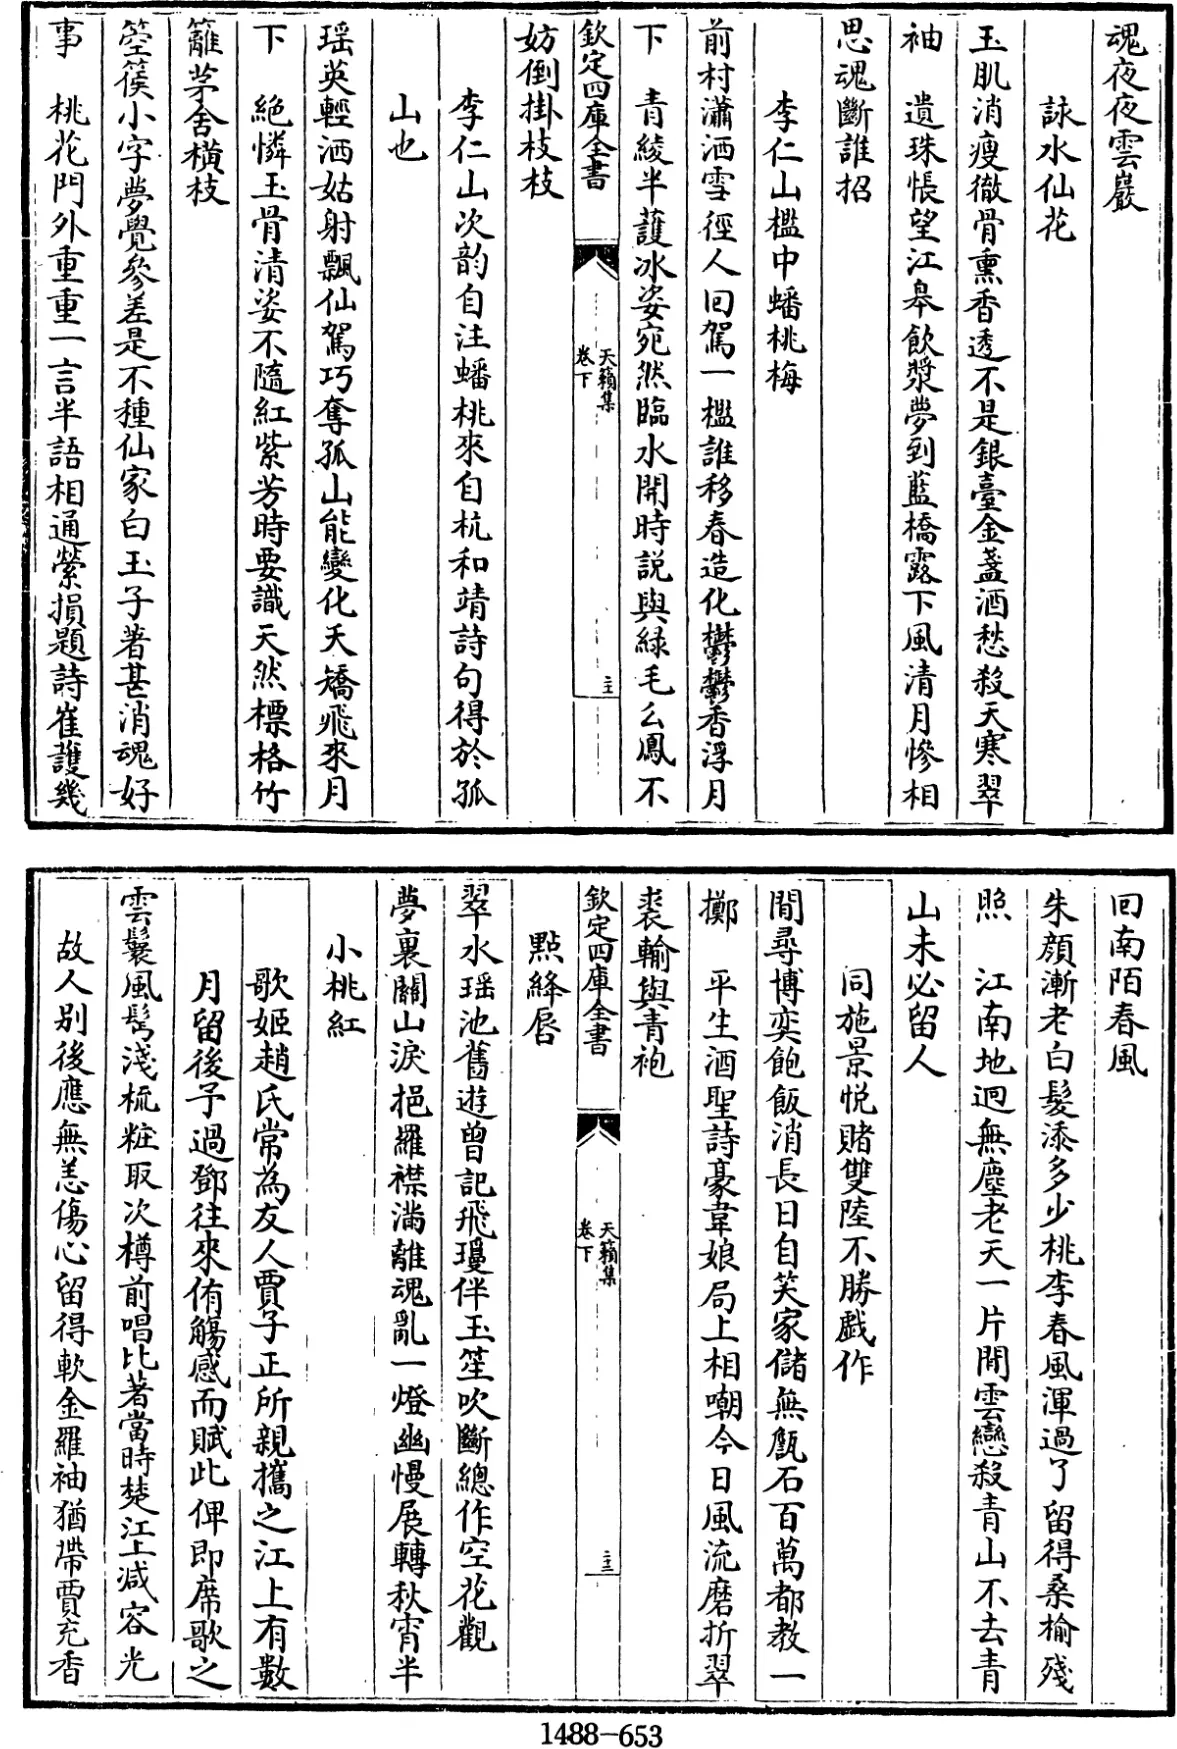 魂夜夜雲巖
詠水仙花
玉肌消瘦徹骨熏香透不是銀臺金盞酒愁殺天寒翠
袖　遺珠悵望江皋飲漿夢到藍橋露下風清月慘相
思魂斷誰招
李仁山檻中蟠桃梅
前村瀟洒雪徑人回駕一檻誰移春造化鬱鬱香浮月
下　青綾半護冰姿宛然臨水開時説與緑毛么鳳不
欽定四庫全書
天籟集
卷下
二十
妨倒掛枝枝
李仁山次韵自注蟠桃來自杭和靖詩句得於孤
山也
瑶英輕洒姑射飄仙駕巧奪孤山能變化夭矯飛來月
下　絶憐玉骨清姿不隨紅紫芳時要識天然標格竹
籬茅舍横枝
箜篌小字夢覺參差是不種仙家白玉子著甚消魂好
事　桃花門外重重一言半語相通縈損題詩崔護幾
回南陌春風
朱顔漸老白髪添多少桃李春風渾過了留得桑榆殘
照　江南地迥無塵老天一片閒雲戀殺青山不去青
山未必留人
同施景悦賭雙陸不勝戲作
閒尋博奕飽飯消長日自笑家儲無甔石百萬都教一
擲　平生酒聖詩豪韋娘局上相嘲今日風流磨折翠
裘輸與青袍
欽定四庫全書
天籟集
卷下
二十三
點絳唇
翠水瑶池舊遊曾記飛瓊伴玉笙吹斷總作空花觀
夢裏關山淚挹羅襟滿離魂亂一燈幽慢展轉秋宵半
小桃紅
歌姬趙氏常為友人賈子正所親攜之江上有數
月留後予過鄧往來侑觴感而賦此俾即席歌之
雲鬟風鬢淺梳粧取次樽前唱比著當時楚江上減容光
故人别後應無恙傷心留得軟金羅袖猶帶賈充香
1488-653